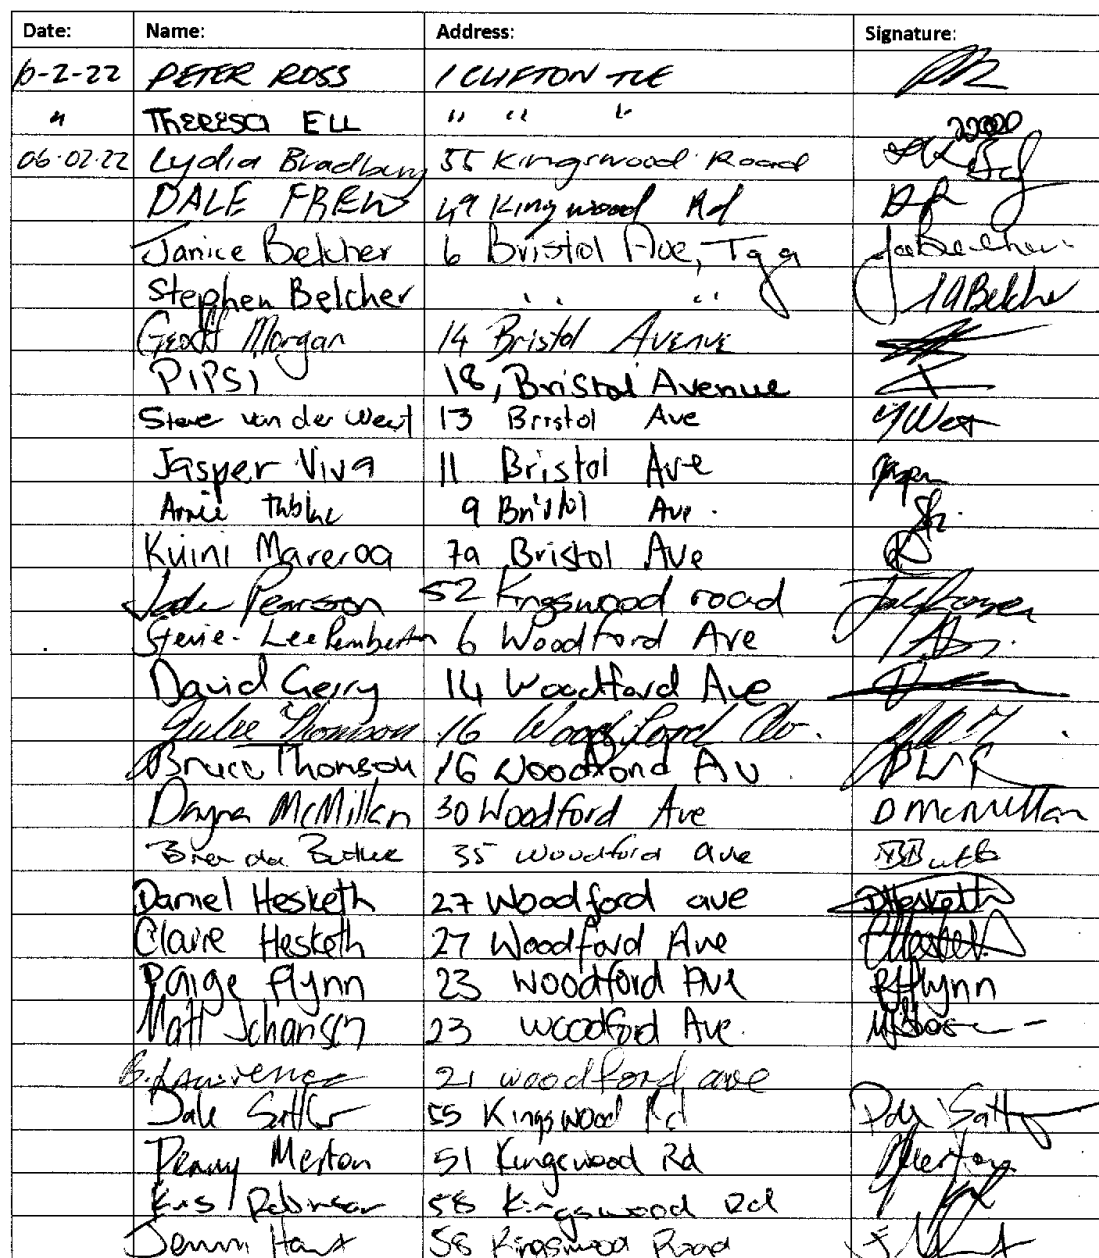 Date: Name: Address: Signature:
10-2-22 PETER ROSS 1 CLIFTON TCE
" THERESA ELL " " "
06.02.22 Lydia Bradbury 55 Kingswood Road
DALE FREW 49 Kingwood Rd
Janice Belcher 6 Bristol Ave, Tga
Stephen Belcher " " Belcher
Geoff Morgan 14 Bristol Avenue
PIPSI 18, Bristol Avenue
Steve van der West 13 Bristol Ave
Jasper Viva 11 Bristol Ave
9 Bristol Ave.
Kuini Mareroa 7a Bristol Ave
Pearson 52 Kingswood road
Stevie-Lee Pemberton 6 Woodford Ave
David Gerry 14 Woodford Ave
Julie Thomson 16 Woodford Av.
Bruce Thomson 16 Woodford Av.
Dayna McMillan 30 Woodford Ave D McMillan
Brenda 35 Woodford ave
Daniel Hesketh 27 Woodford ave DHesketh
Claire Hesketh 27 Woodford Ave
Paige Flynn 23 Woodford Ave PFlynn
Matt Johansen 23 Woodford Ave.
B. Lawrence 21 woodford ave
Dale 55 Kingswood Rd Dale
Penny Merton 51 Kingswood Rd PMerton
Kris Robinson 58 Kingswood Rd
58 Kingswood Road